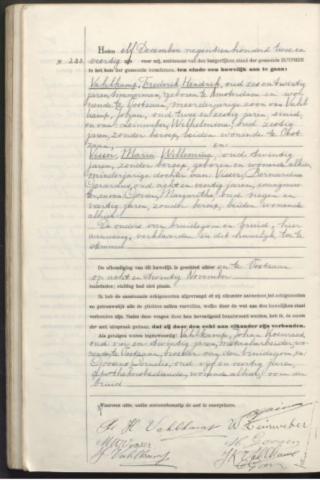 Heden elf December negentienhonderd twee en
N° 283. veertig zijn voor mij, ambtenaar van den burgerlijken stand der gemeente ZUTPHEN
in het huis der gemeente verschenen, ten einde een huwelijk aan te gaan:
Vahlkamp, Frederik Hendrik, oud zes en twintig
jaren, geboren te Amsterdam en wo-
nende te Oostzaan, meerderjarige zoon van Vahl-
kamp, Johan, oud twee en zestig jaren, smid,
en van Leinweber, Wilhelmina, oud zestig
jaren, zonder beroep, beiden wonende te Oost-
zaan; en
Visser, Maria Willemina, oud twintig
jaren, zonder beroep, geboren en wonende alhier,
minderjarige dochter van: Visser, Bernardus
Gerardus, oud acht en veertig jaren,
en van: Margaretha, oud negen en
veertig jaren, zonder beroep, beiden wonende
alhier.
De ouders van bruidegom en bruid, hier
aanwezig, verklaarden in dit huwelijk toe te
stemmen.
De afkondiging van dit huwelijk is geschied alhier en te Oostzaan
op acht en twintig November
bestaken; stuiting had niet plaats.
In het als aanstaande echtgenooten afgevraagd of zij elkander aannemen tot echtgenooten
en getrouwelijk alle de plichten zullen vervullen, welke door de wet aan den huwelijken staat
verbonden zijn. Nadat deze vragen door hen bevestigend beantwoord werden, heb ik, in naam
der wet uitspraak gedaan, dat zij door den echt aan elkander zijn verbonden.
Als getuigen waren tegenwoordig: Vahlkamp, Johan Koenraad,
oud vier en dertig jaren, metaalarbeider, wo-
nende te Oostzaan, broeder van den bruidegom, en
Cornelis, oud vijf en veertig jaren,
wonende alhier, oom der
bruid.
Waarvan akte, welke overeenkomstig de wet is voorgelezen.
F. H. Vahlkamp W. Leinweber
M W Visser
J. Vahlkamp J K Vahlkamp